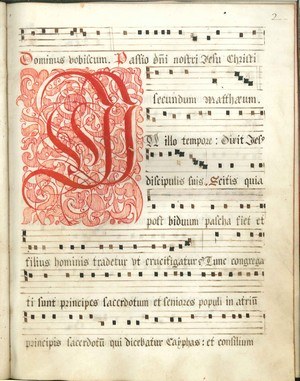 2
Dominus vobiscum. Passio dñi nostri Jesu Christi
secundum Matthæum.
IN illo tempore: Dixit Jesꝰ
discipulis suis. Scitis quia
post biduum pascha fiet et
filius hominis tradetur vt crucifigatur. Tunc congrega
ti sunt principes sacerdotum et seniores populi in atriū
principis sacerdotū qui dicebatur Cayphas: et consilium